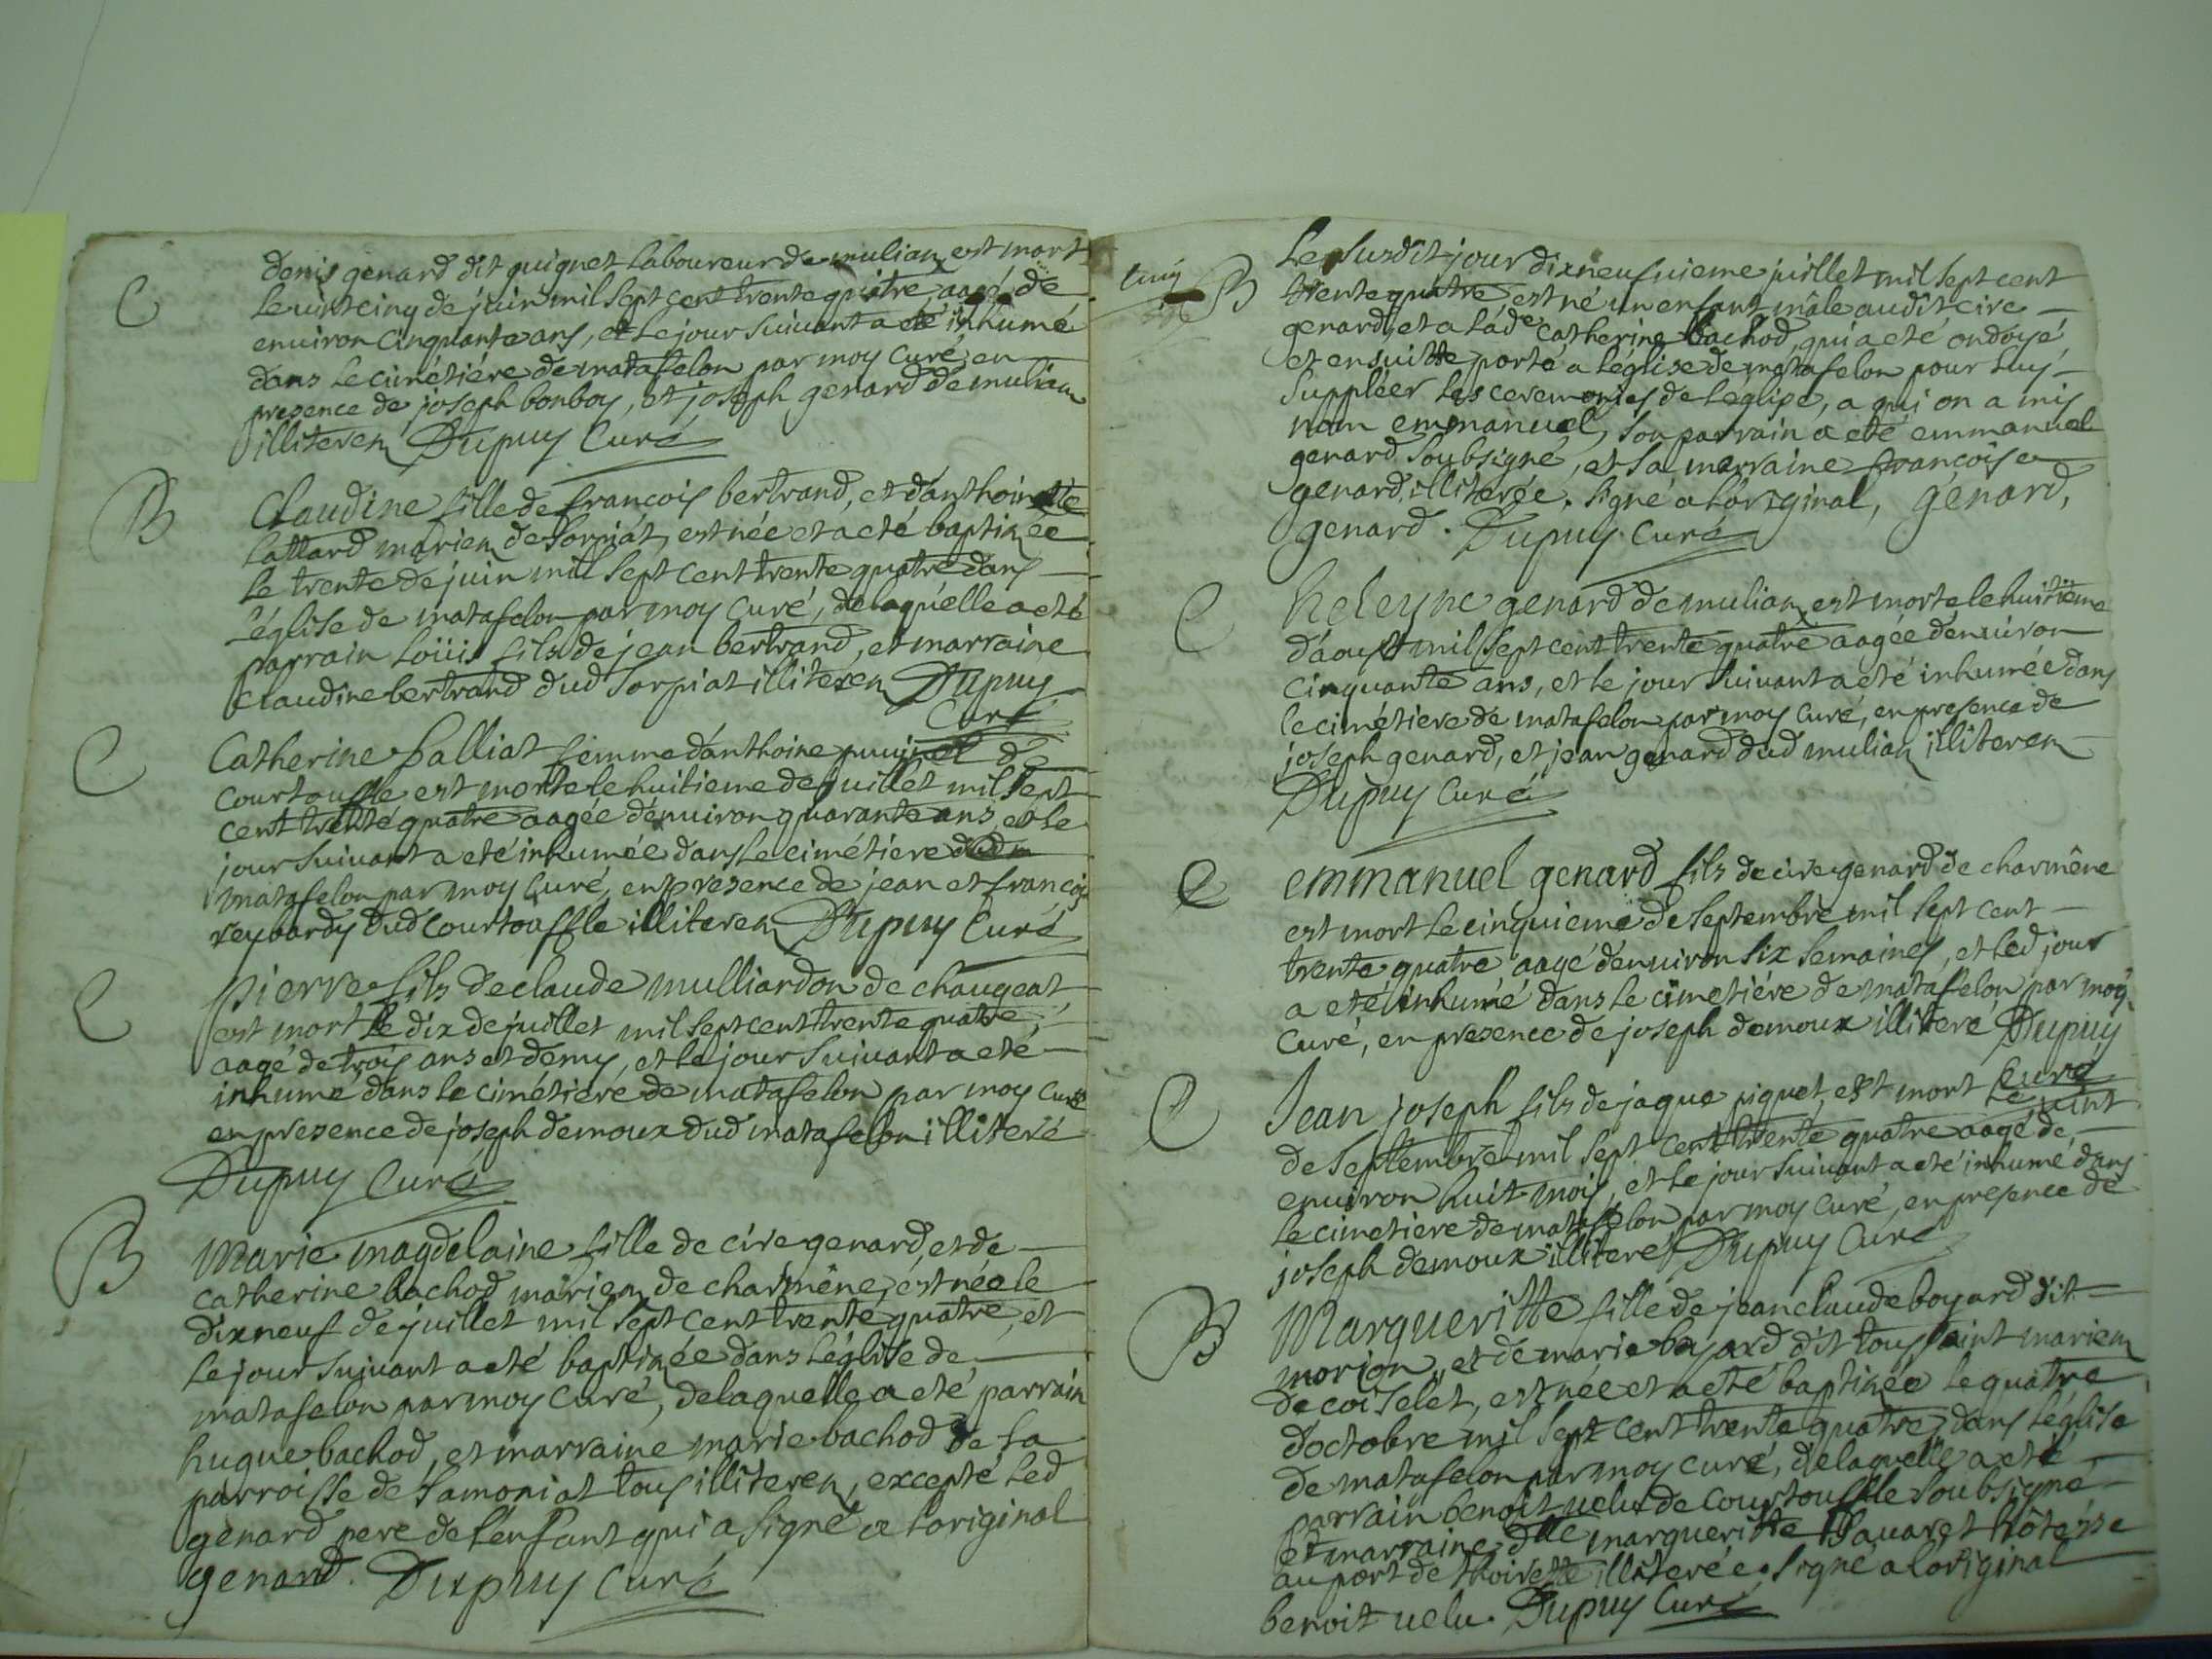 C
denis genard dit guignet laboureur de mulian est mort
le vint cinq de juin mil sept cent trente quatre aagé de
environ cinquante ans, et le jour suivant a eté inhumé
dans le cimétiére de matafelon par moy curé en
presence de joseph bonboy, et joseph genard de mulian
illiterez Dupuy Curé
B
Claudine fille de francois bertrand, et d'anthoinette
lattard mariez de sorpiat, est née et a eté baptizée
le trente de juin mil sept cent trente quatre dans
l'église de matafelon par moy curé, de laquelle a eté
parrain loüis fils de jean bertrand, et marraine
claudine bertrand dud sorpiat illiterez Dupuy
Curé
C
Catherine balliat femme d'anthoine de
courtouffle est morte le huitieme de juillet mil sept
cent trente quatre aagée d'environ quarante ans, et le
jour suivant a eté inhumée dans le cimétiere
matafelon par moy curé, en presence de jean et françois
reybardy dud courtouffle illiterez Dupuy Curé
C
pierre fils de claude mulliardon de chaugeat
est mort le dix de juillet mil sept cent trente quatre,
aagé de trois ans et demy, et le jour suivant a eté
inhumé dans le cimétiere de matafelon par moy curé
en presence de joseph demoux dud matafelon illiteré
Dupuy Curé
B
Marie magdelaine fille de cire genard et de
catherine bachod mariez de charmêne, est née le
dixneuf de juillet mil sept cent trente quatre, et
le jour suivant a eté baptizée dans l'église de
matafelon par moy curé, de laquelle a eté parrain
hugue bachod, et marraine marie bachod de la
parroisse de Samoniat tous illiterez, excepté led
genard pere de l'enfant qui a signé a l'original
genard. Dupuy Curé
B
Le susdit jour dixneufuieme juillet mil sept cent
trente quatre est né un enfant mâle audit cire
genard, et a lade catherine bachod, qui a eté ondoyé
et ensuitte porté a l'église de matafelon pour luy
suppléer les ceremonies de l'église, a qui on a mis
nom emmanuel, son parrain a eté emmanuel
genard soubsigné, et sa marraine françoise
genard, illiterée. signé a l'original, genard,
genard. Dupuy Curé
C
heleyne genard de mulian est morte le huitième
d'aoust mil sept cent trente quatre aagée d'environ
cinquante ans, et le jour suivant a eté inhumée dans
le cimétiere de matafelon par moy curé, en presence de
joseph genard, et jean genard dud mulian illiterez
Dupuy Curé
C
emmanuel genard fils de cire genard de charmêne
est mort le cinquieme de septembre mil sept cent
trente quatre aagé d'environ six semaines, et led jour
a eté inhumé dans le cimetiére de matafelon par moy
curé, en presence de joseph demoux illiteré Dupuy
Curé
C
Jean joseph fils de jaque piquet est mort le vint
de septembre mil sept cent trente quatre aagé de
environ huit mois, et le jour suivant a eté inhumé dans
le cimetiere de matafelon par moy curé, en presence de
joseph demoux illiteré Dupuy Curé
B
Margueritte fille de jean claude boyard dit
morion, et de marie boyard dit toussaint mariez
de coiselet, est née et a eté baptizée le quatre
d'octobre mil sept cent trente quatre, dans l'église
de matafelon par moy curé, de laquelle a eté
parrain benoit velu de courtouffle soubsigné
et marraine dlle margueritte hôtesse
au port de thoirette illiterée. signé a l'original
benoit velu. Dupuy Curé